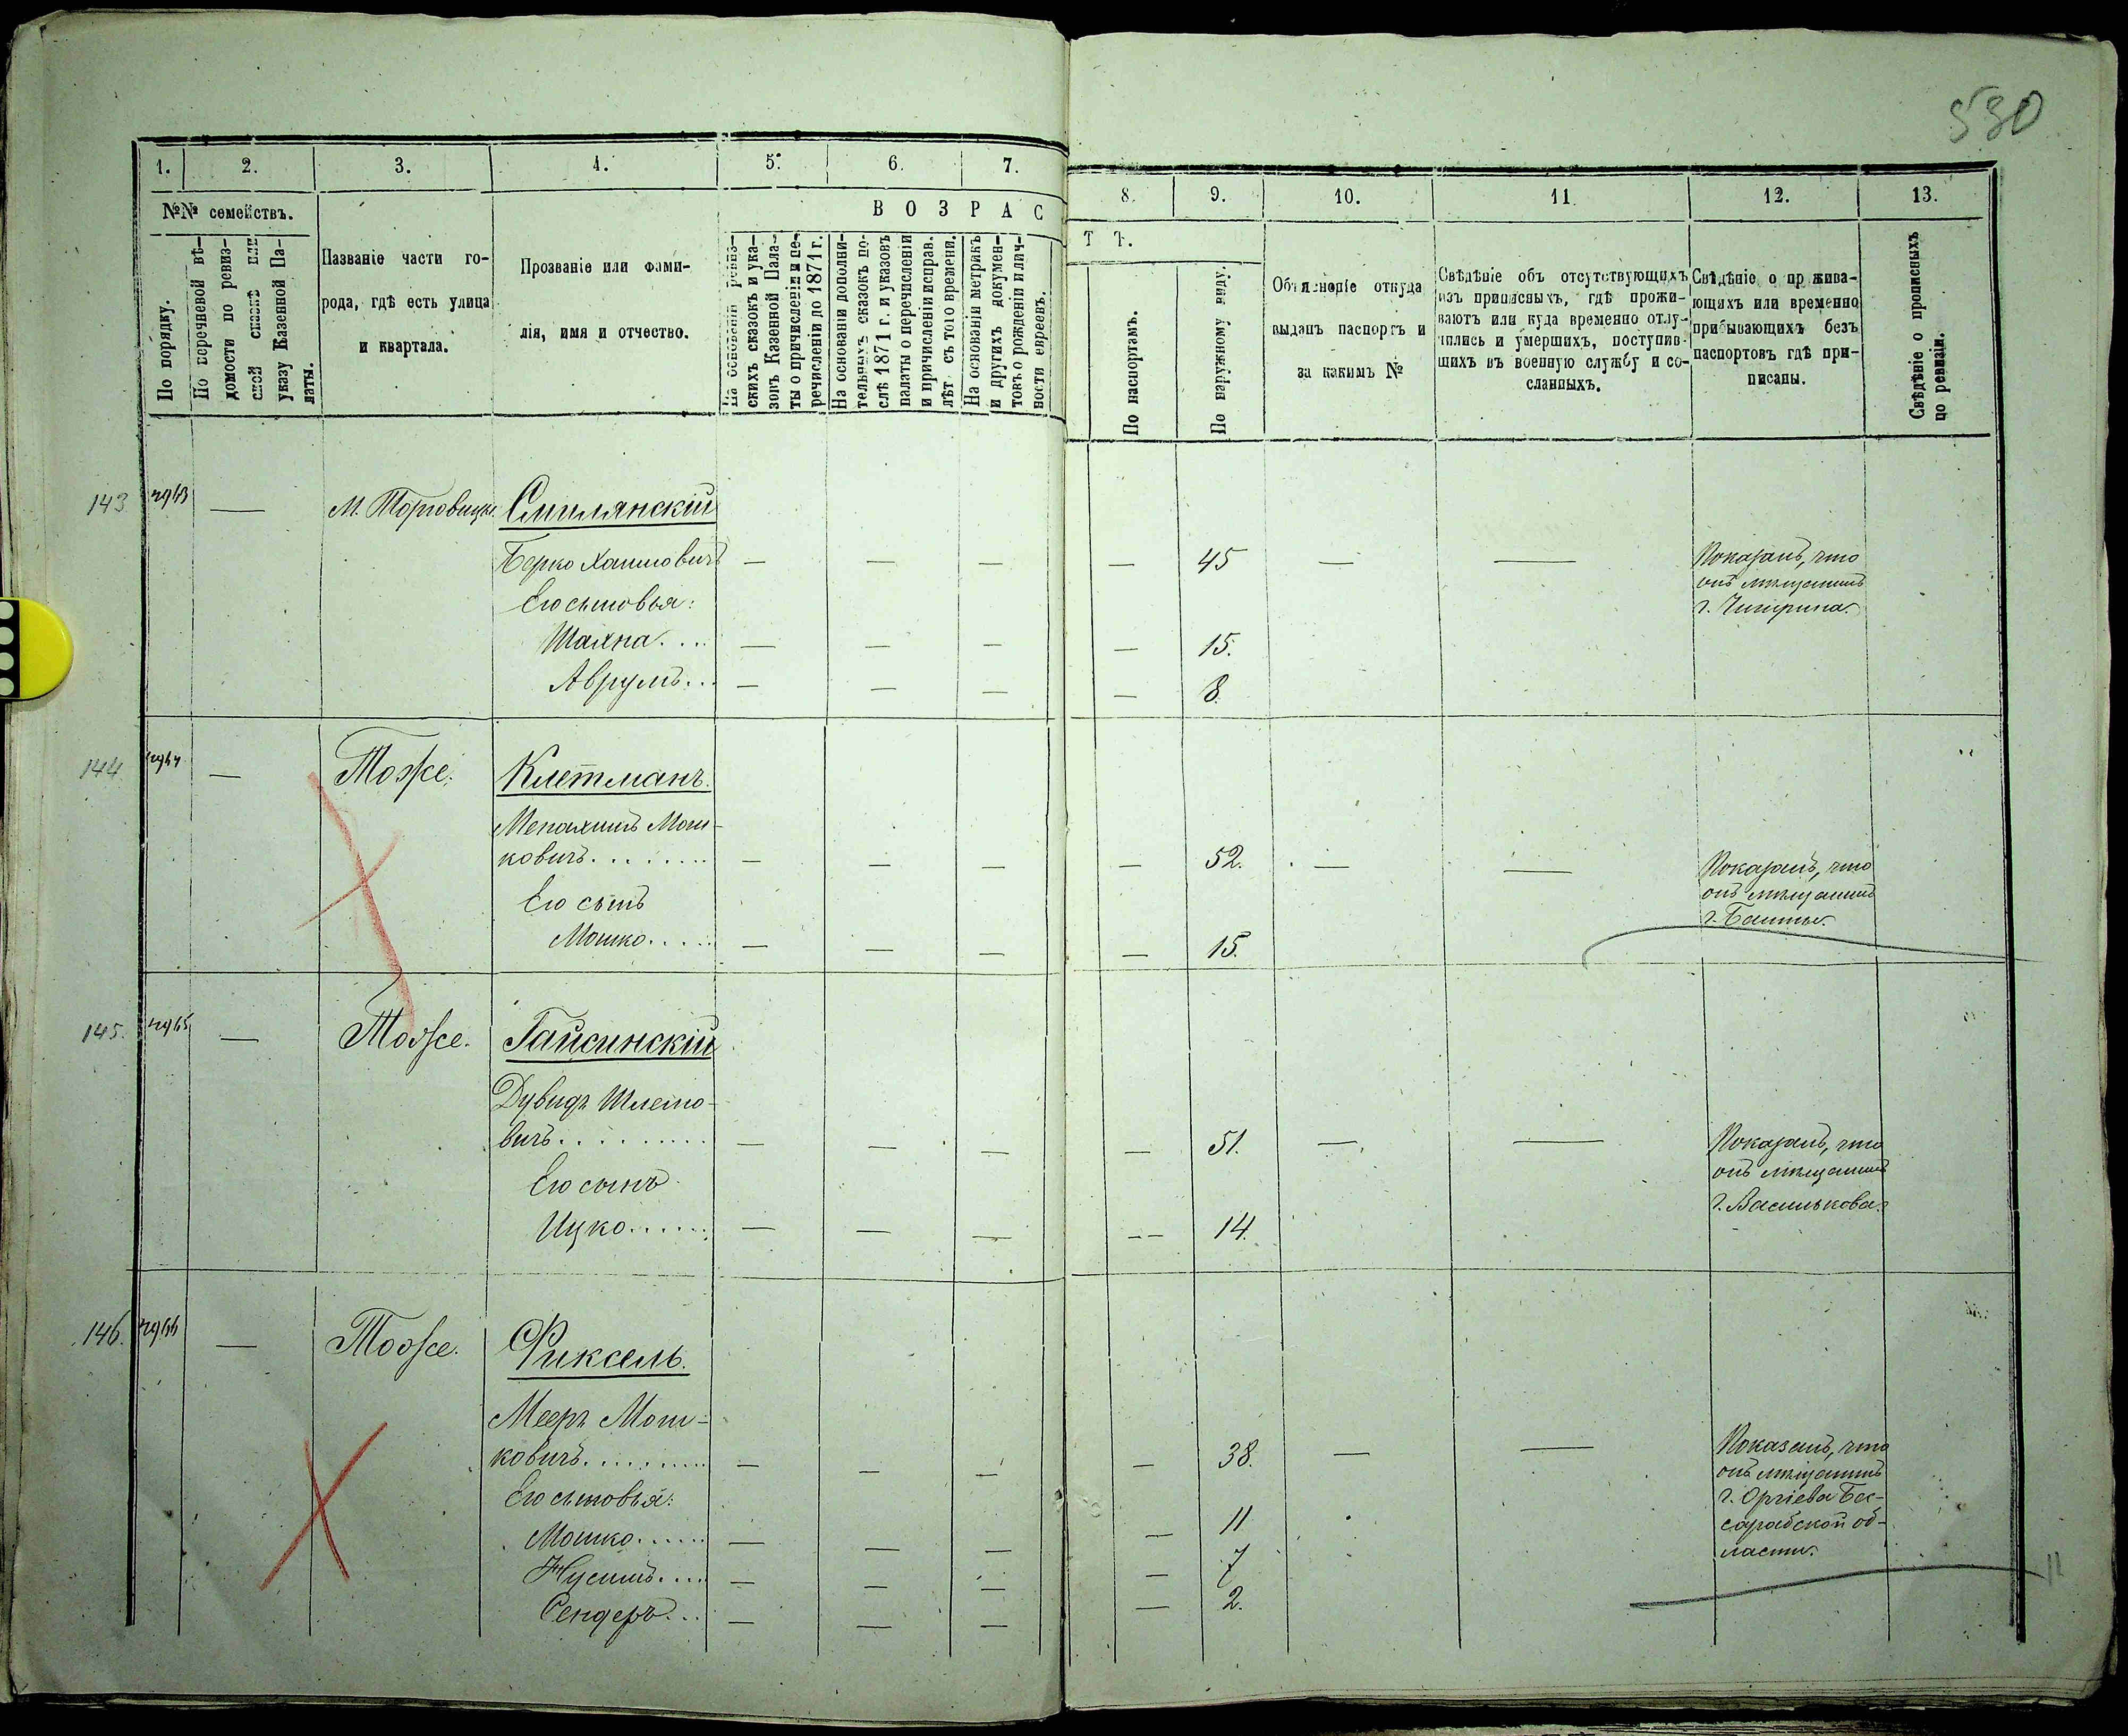 530
1.
2.
3.
4.
5.
6.
7.
8.
9.
10.
11.
12.
13.
№№ семействъ.
В О З Р А С
Т Ъ.
По порядку.
По перечневой вѣ-
домости по ревиз-
ской сказкѣ или
указу Казенной Па-
латы.
Названіе части го-
рода, гдѣ есть улица
и квартала.
Прозваніе или фами-
лія, имя и отчество.
На основаніи ревиз-
скихъ сказокъ и ука-
зовъ Казенной Пала-
ты о причисленіи и пе-
речисленіи до 1871 г.
На основаніи дополни-
тельныхъ сказокъ по-
слѣ 1871 г. и указовъ
палаты о перечисленіи
и причисленіи исправ.
лѣт съ того времени.
На основаніи метрикъ
и другихъ докумен-
товъ о рожденіи и лич-
ности евреевъ.
По паспортамъ.
По наружному виду.
Объясненіе откуда
выданъ паспортъ и
за какимъ №
Свѣдѣніе объ отсутствующихъ
изъ приписныхъ, гдѣ прожи-
ваютъ или куда временно отлу-
чились и умершихъ, поступив-
шихъ въ военную службу и со-
сланныхъ.
Свѣдѣніе о прожива-
ющихъ или временно
прибывающихъ безъ
паспортовъ гдѣ при-
писаны.
Свѣдѣніе о прописныхъ
по ревизіи.
143 — М. Торговица. Смилянскій
Берко Хаимовичъ — — — — 45 — — Показалъ, что
онъ мѣщанинъ
г. Чигирина.
Его сыновья:
Шахна . . . — — — — 15.
Аврумъ . . . — — — — 8.
144 — Тоже. Клетманъ.
Менахимъ Мош-
ковичъ . . . . . . . — — — — 52. — — Показалъ, что
онъ мѣщанинъ
г. Балты.
Его сынъ
Мошко . . . . . — — — — 15.
145. — Тоже. Гайсинскій
Дувидъ Шлемо-
вичъ . . . . . . . . — — — — 51. — — Показалъ, что
онъ мѣщанинъ
г. Василькова.
Его сынъ
Ицко . . . . . . — — — — 14.
146. — Тоже. Фиксель.
Мееръ Мош-
ковичъ . . . . . . . . — — — — 38. — — Показалъ, что
онъ мѣщанинъ
г. Оргіева Бес-
сарабской об-
ласти.
Его сыновья:
Мошко . . . . . . — — — — 11
Нусимъ . . . . — — — — 7
Сендеръ . . . — — — — 2.